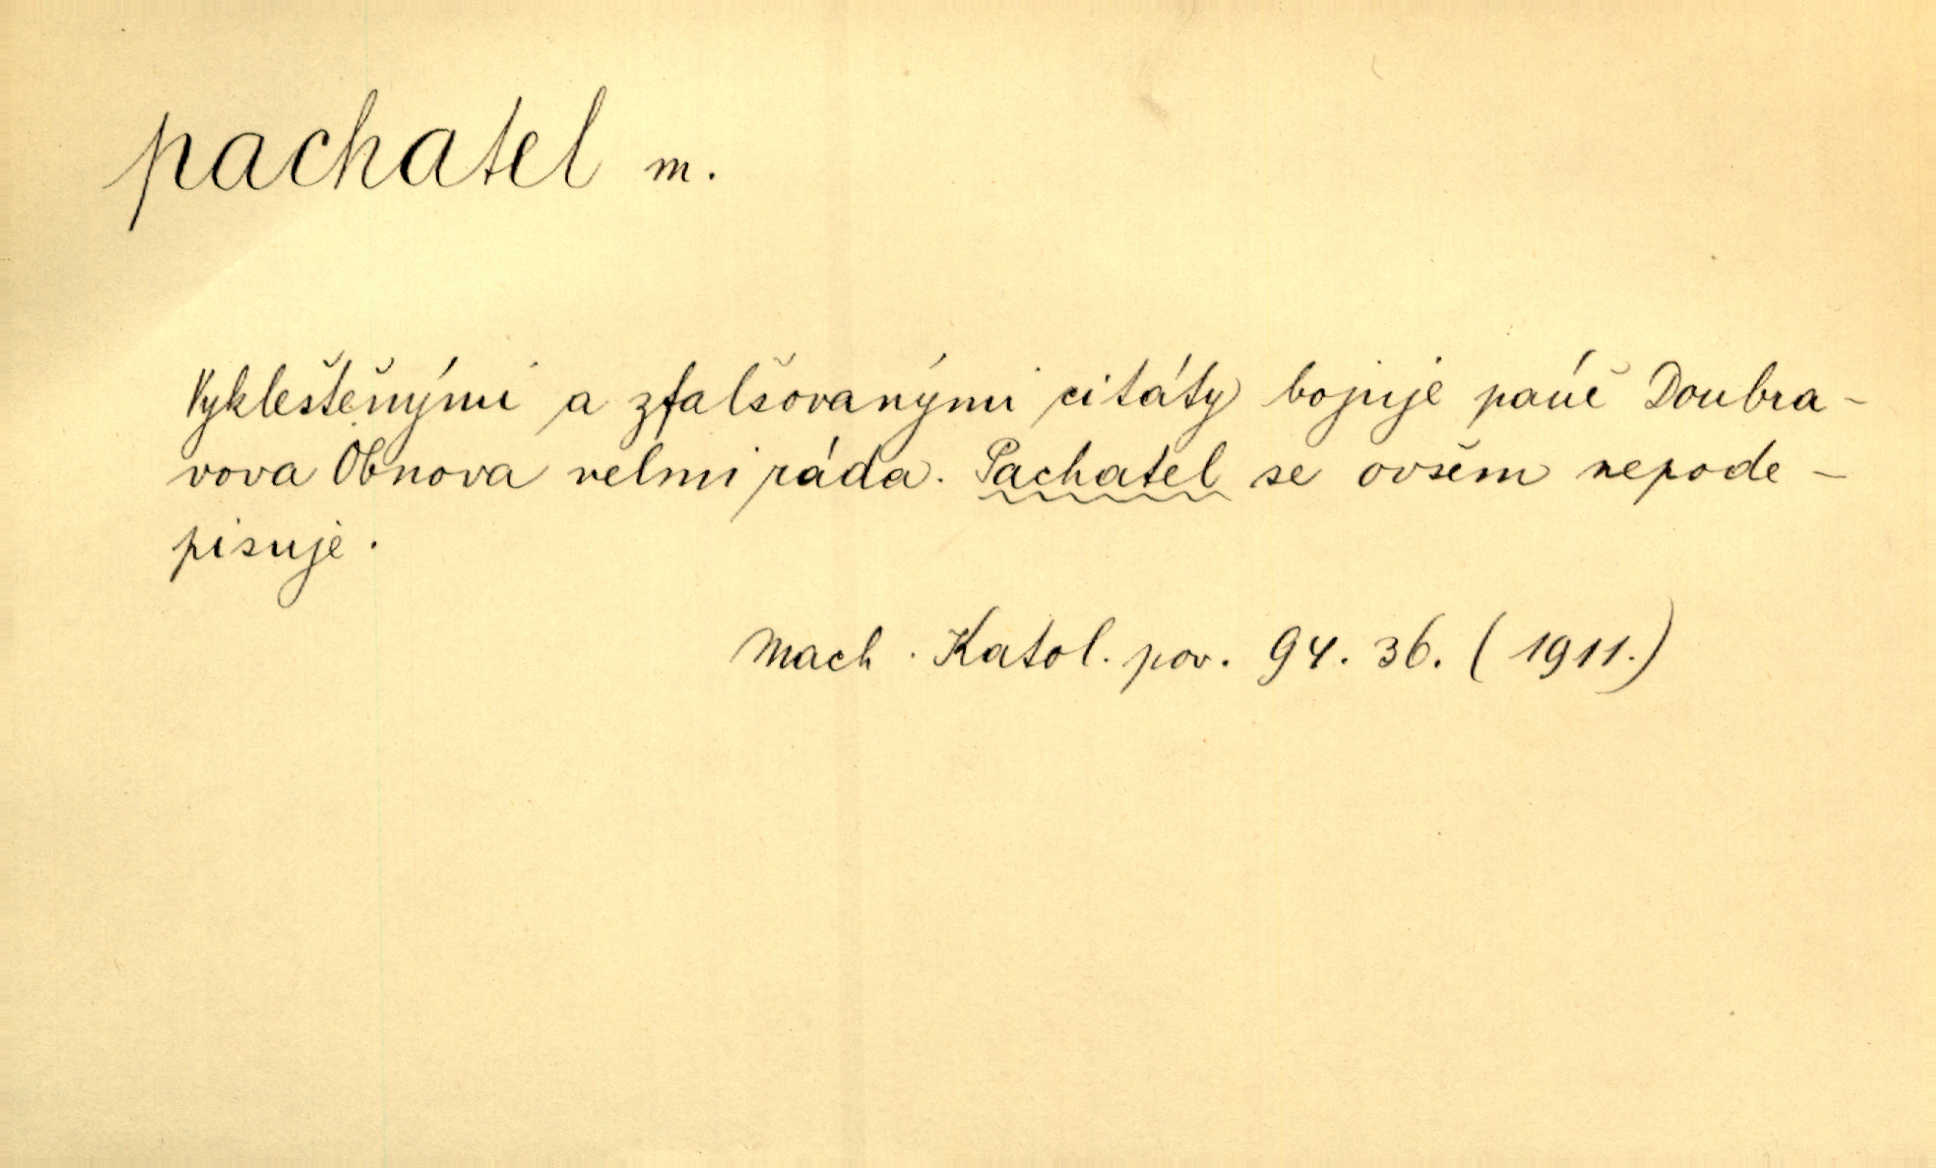 pachatel m.
Vykleštěnými a zfalšovanými citáty bojuje páně Doubra-
vova Obnova velmi ráda. Pachatel se ovšem nepode-
pisuje.
Mach. Katol. pov. 94. 36. (1911.)